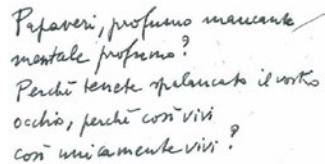 Papaveri, profumo mancante/
mentale profumo?
Perché tenete spalancato il vostro
occhio, perché così vivi
così unicamente vivi?